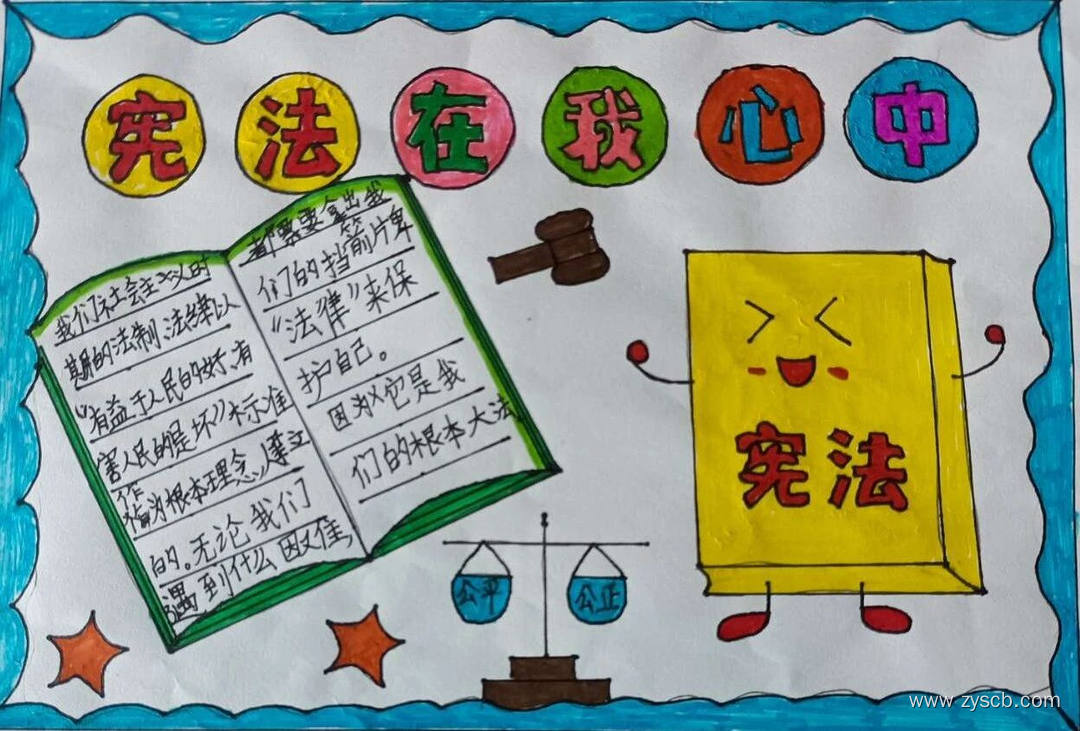 宪法在我心中
我们社会主义时
期的法制、法律以
“有益于人民的好,有
害人民的是坏”标准
作为根本理念,建立
的。无论我们
遇到什么困难,
都需要拿出我
们的挡箭牌
“法律”来保
护自己。
因为它是我
们的根本大法
宪法
公平
公正
www.zyscb.com